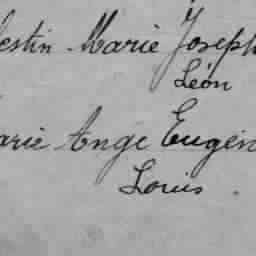 estin Marie Joseph
Léon
arie Ange Eugèn
Louis